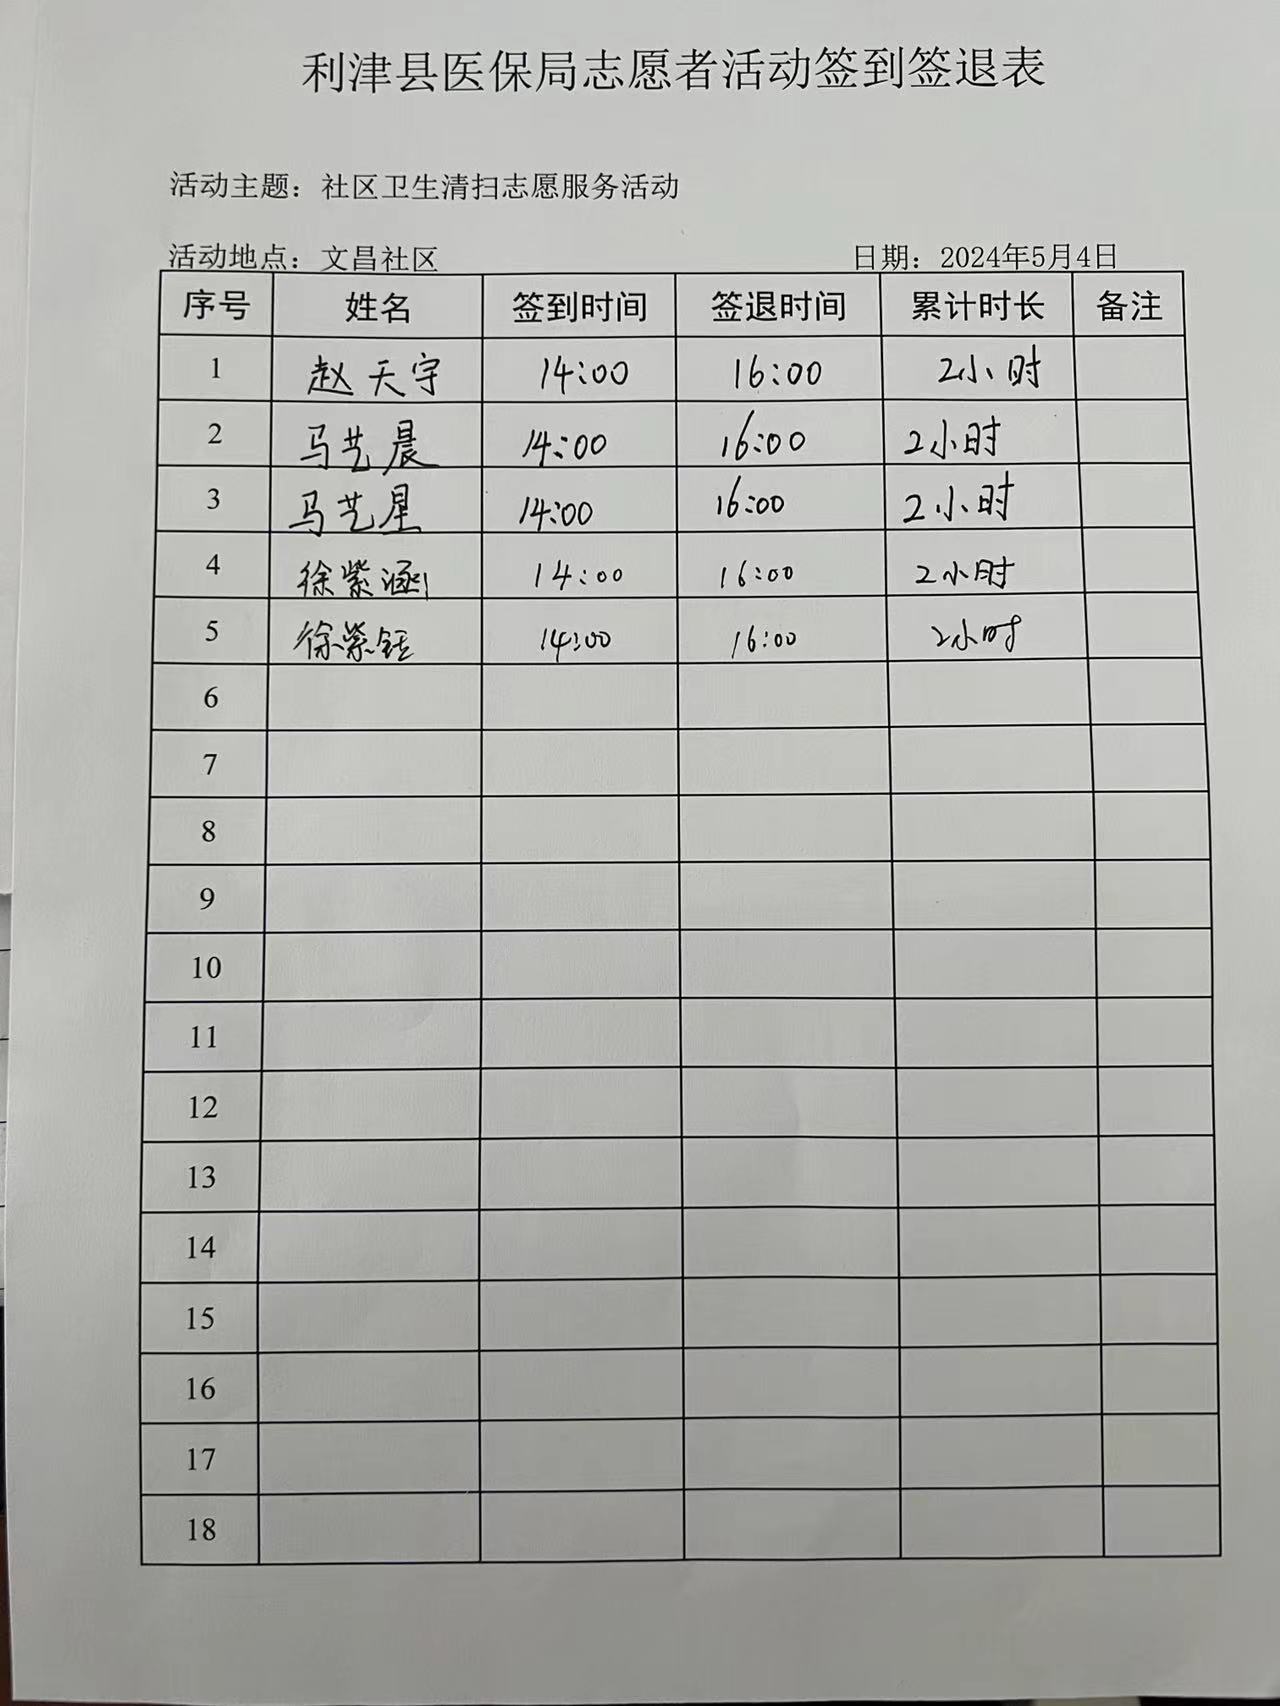 利津县医保局志愿者活动签到签退表
活动主题：社区卫生清扫志愿服务活动
活动地点：文昌社区 日期：2024年5月4日
序号 姓名 签到时间 签退时间 累计时长 备注
1 赵天宇 14:00 16:00 2小时
2 马艺晨 14:00 16:00 2小时
3 马艺星 14:00 16:00 2小时
4 徐紫涵 14:00 16:00 2小时
5 徐紫钰 14:00 16:00 2小时
6
7
8
9
10
11
12
13
14
15
16
17
18